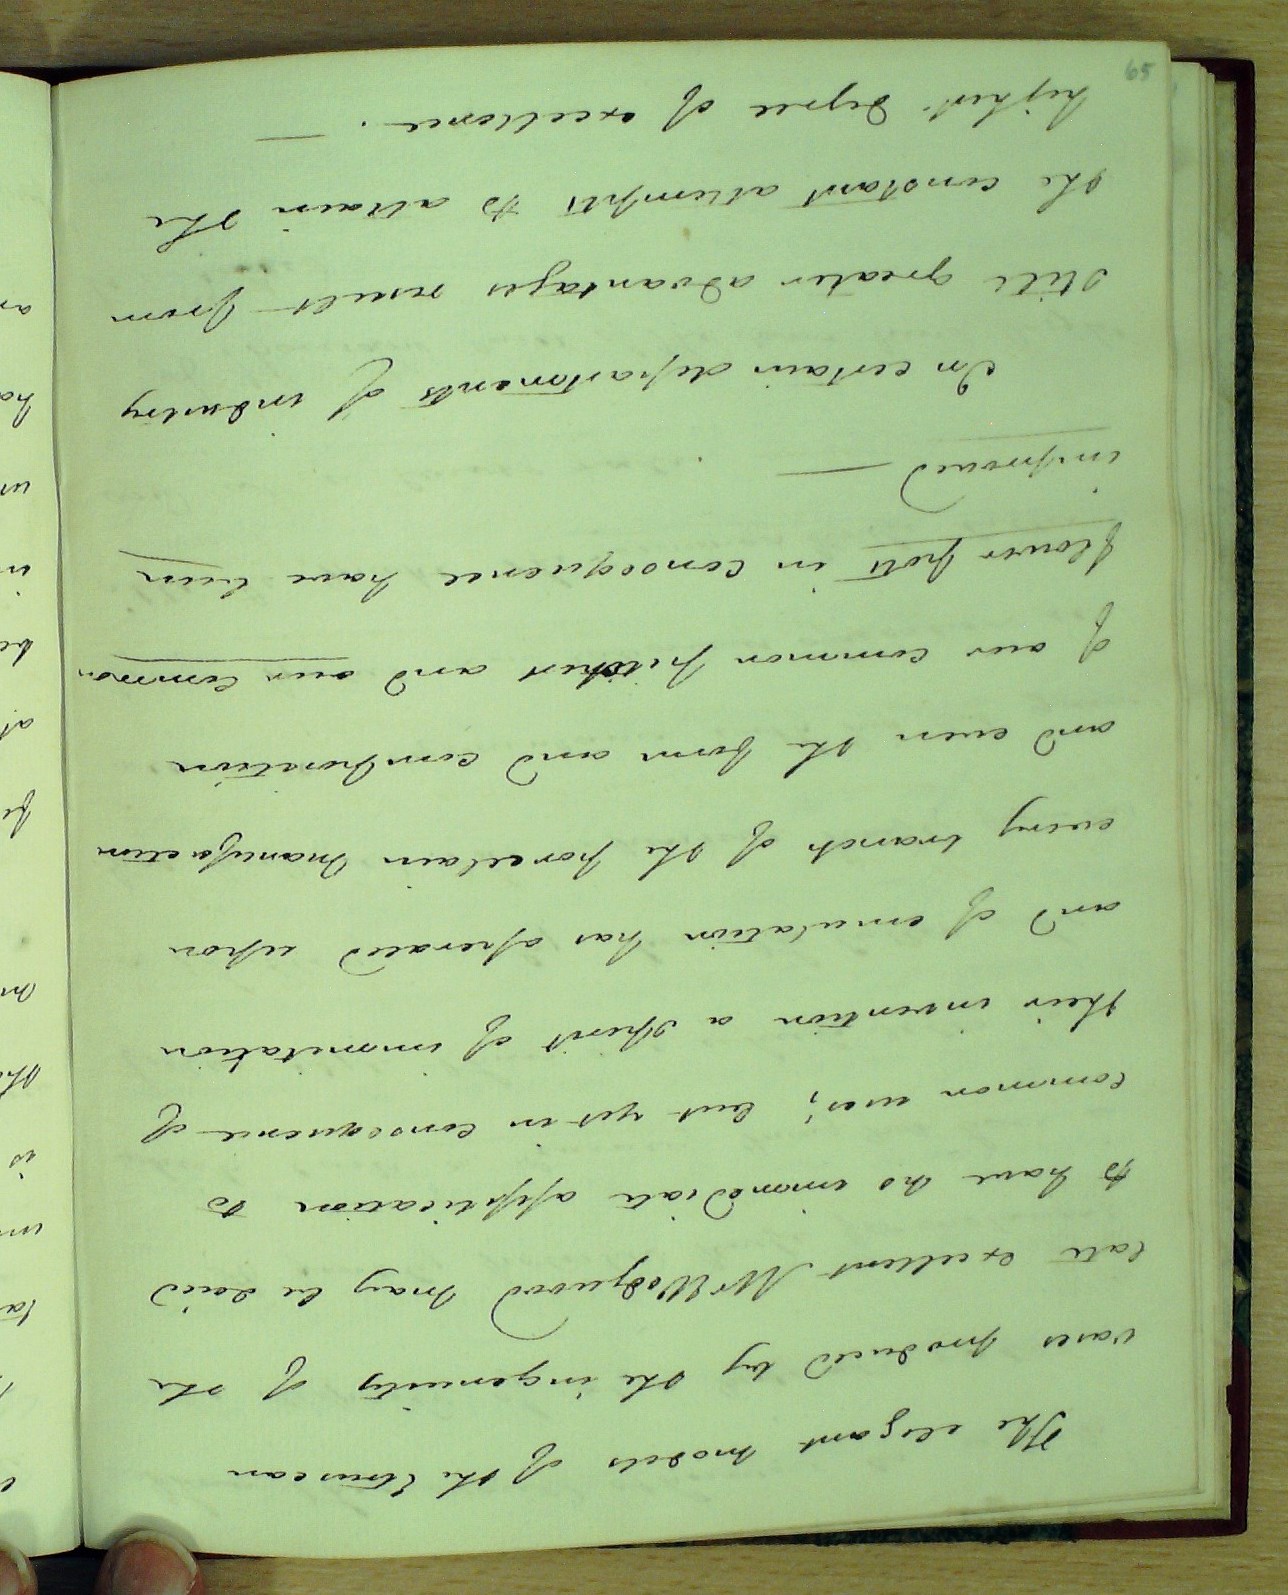 The elegant models of the Etruscan
vases produced by the ingenuity of the
late excellent Mr Wedgwood may be said
to have no immediate application to
common uses; but yet in consequence of
their invention a spirit of immitation
and of emulation has operated upon
every branch of the porcelain manufaction
and even the form and composition
of our common pitchers and our common
flower pots in consequence have been
improved —
In certain departments of industry
still greater advantages result from
the constant attempts to attain the
highest degree of excellence. —
65